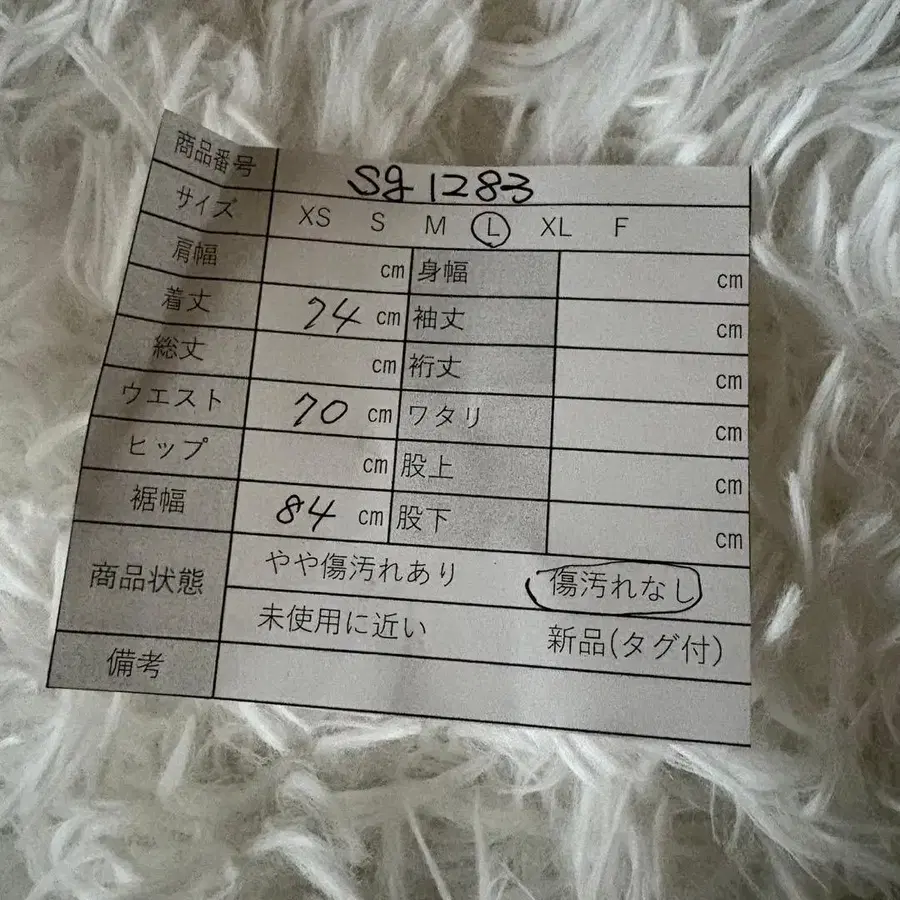 商品番号 sg 1283
サイズ XS S M L XL F
肩幅 cm 身幅 cm
着丈 74 cm 袖丈 cm
総丈 cm 裄丈 cm
ウエスト 70 cm ワタリ cm
ヒップ cm 股上 cm
裾幅 84 cm 股下 cm
商品状態 やや傷汚れあり 傷汚れなし
未使用に近い 新品(タグ付)
備考